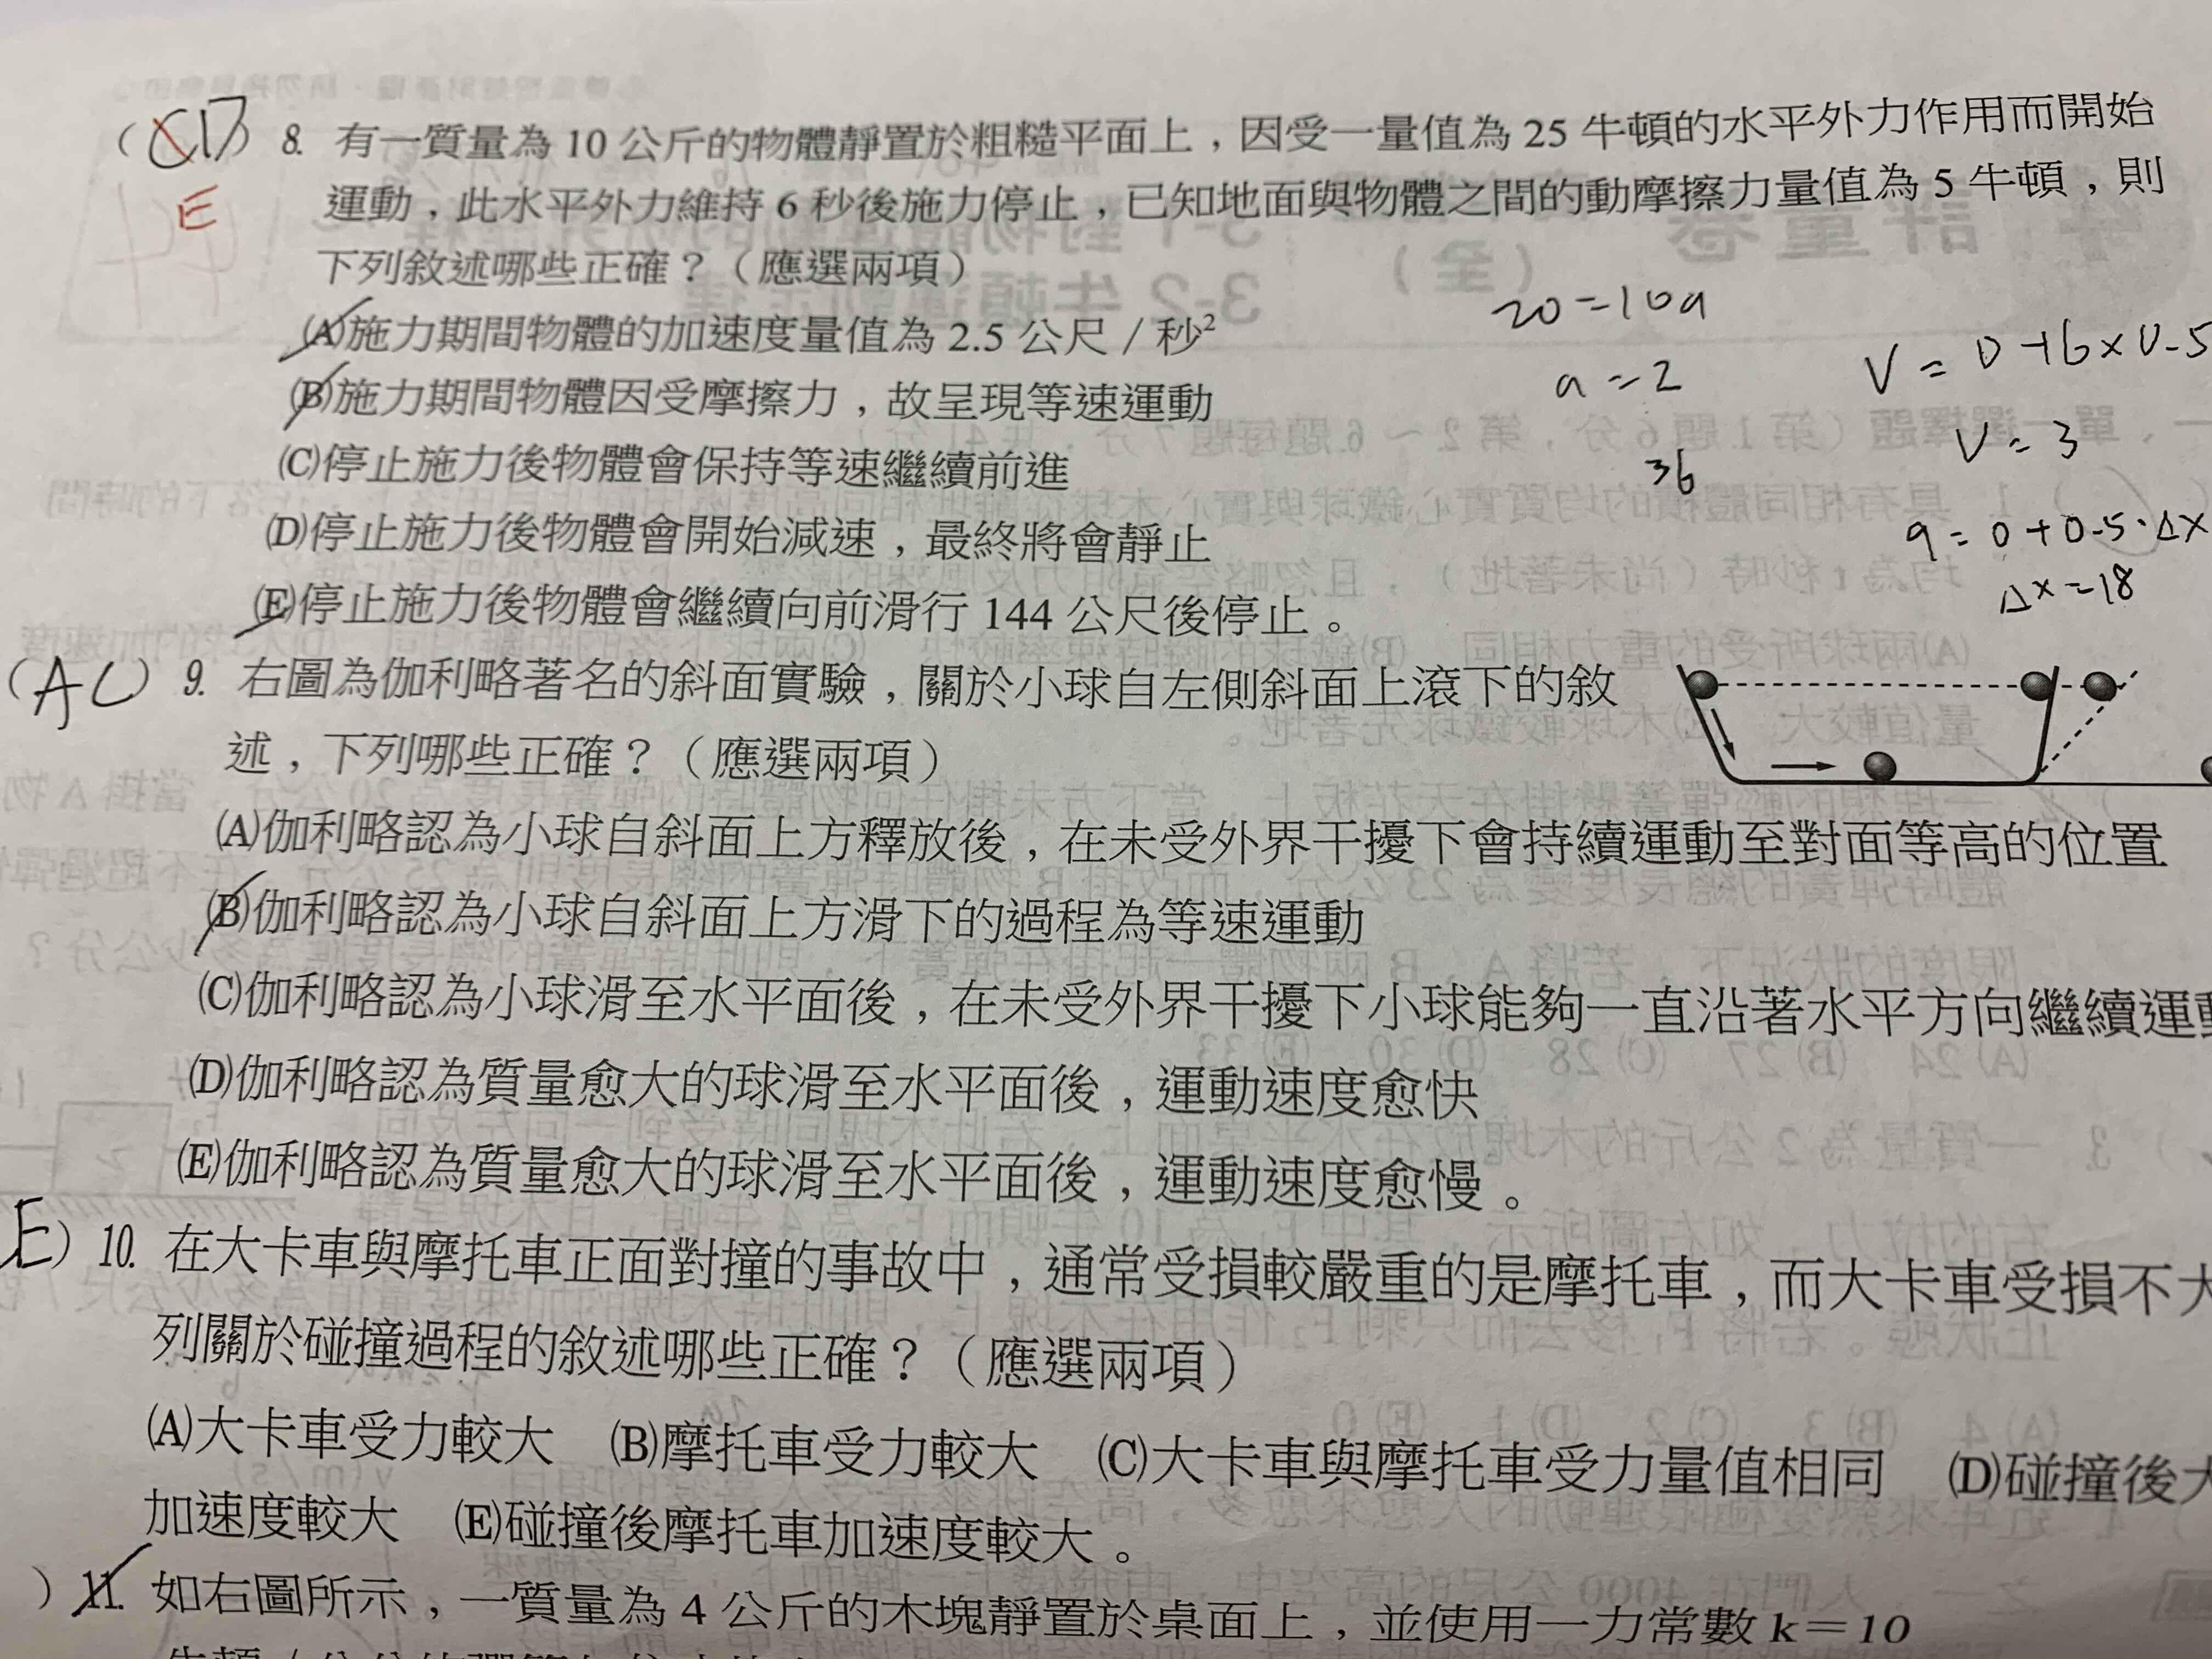 (CD) 8. 有一質量為 10 公斤的物體靜置於粗糙平面上，因受一量值為 25 牛頓的水平外力作用而開始
E 運動，此水平外力維持 6 秒後施力停止，已知地面與物體之間的動摩擦力量值為 5 牛頓，則
下列敘述哪些正確？（應選兩項）
(A)施力期間物體的加速度量值為 2.5 公尺／秒²
20=10a
(B)施力期間物體因受摩擦力，故呈現等速運動
a=2
V=0+6×0.5
(C)停止施力後物體會保持等速繼續前進
36
V=3
(D)停止施力後物體會開始減速，最終將會靜止
9=0+0.5·Δx
(E)停止施力後物體會繼續向前滑行 144 公尺後停止。
Δx=18
(AC) 9. 右圖為伽利略著名的斜面實驗，關於小球自左側斜面上滾下的敘
述，下列哪些正確？（應選兩項）
(A)伽利略認為小球自斜面上方釋放後，在未受外界干擾下會持續運動至對面等高的位置
(B)伽利略認為小球自斜面上方滑下的過程為等速運動
(C)伽利略認為小球滑至水平面後，在未受外界干擾下小球能夠一直沿著水平方向繼續運動
(D)伽利略認為質量愈大的球滑至水平面後，運動速度愈快
(E)伽利略認為質量愈大的球滑至水平面後，運動速度愈慢。
E) 10. 在大卡車與摩托車正面對撞的事故中，通常受損較嚴重的是摩托車，而大卡車受損不大
列關於碰撞過程的敘述哪些正確？（應選兩項）
(A)大卡車受力較大 (B)摩托車受力較大 (C)大卡車與摩托車受力量值相同 (D)碰撞後大
加速度較大 (E)碰撞後摩托車加速度較大。
) 11. 如右圖所示，一質量為 4 公斤的木塊靜置於桌面上，並使用一力常數 k＝10